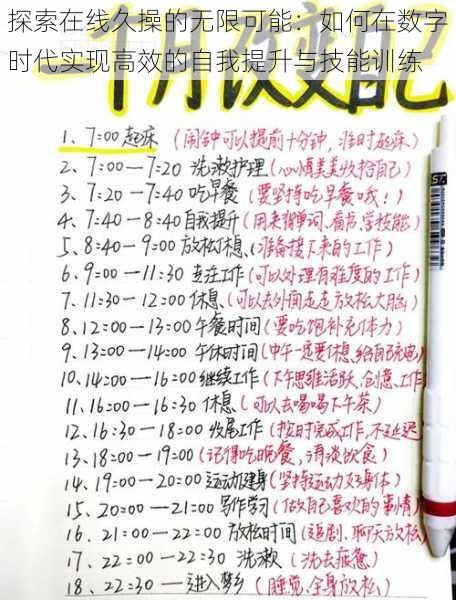 探索在线久操的无限可能：如何在数字
时代实现高效的自我提升与技能训练
一个月改变自己
1、7:00 起床 (闹钟可以提前十分钟，准时起床)
2、7:00—7:20 洗漱护理 (心情美美收拾自己)
3、7:20—7:40 吃早餐 (要坚持吃早餐哦！)
4、7:40—8:40 自我提升 (用来背单词、看书、学技能)
5、8:40—9:00 放松休息 (准备接下来的工作)
6、9:00—11:30 专注工作 (可以处理有难度的工作)
7、11:30—12:00 休息 (可以去外面走走放松大脑)
8、12:00—13:00 午餐时间 (要吃饱补充体力)
9、13:00—14:00 午休时间 (中午一定要休息,给自己充电)
10、14:00—16:00 继续工作 (下午思维活跃、创意、工作
11、16:00—16:30 休息 (可以去喝喝下午茶)
12、16:30—18:00 收尾工作 (按时完成工作,不延迟
13、18:00—19:00 (记得吃晚餐，清淡饮食)
14、19:00—20:00 运动健身 (坚持运动好身体)
15、20:00—21:00 写作学习 (做自己喜欢的事情)
16、21:00—22:00 放松时间 (追剧、聊天放松)
17、22:00—22:30 洗漱 (洗去疲惫)
18、22:30—进入梦乡 (睡觉、全身放松)